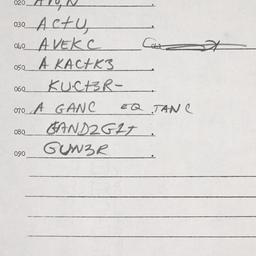 020
030 ACTU,
040 AVEKC
050 A KACTK3
060 KUCT3R-
070 A GANC EQ JANC
080 GAND2G1T
090 GUN3R